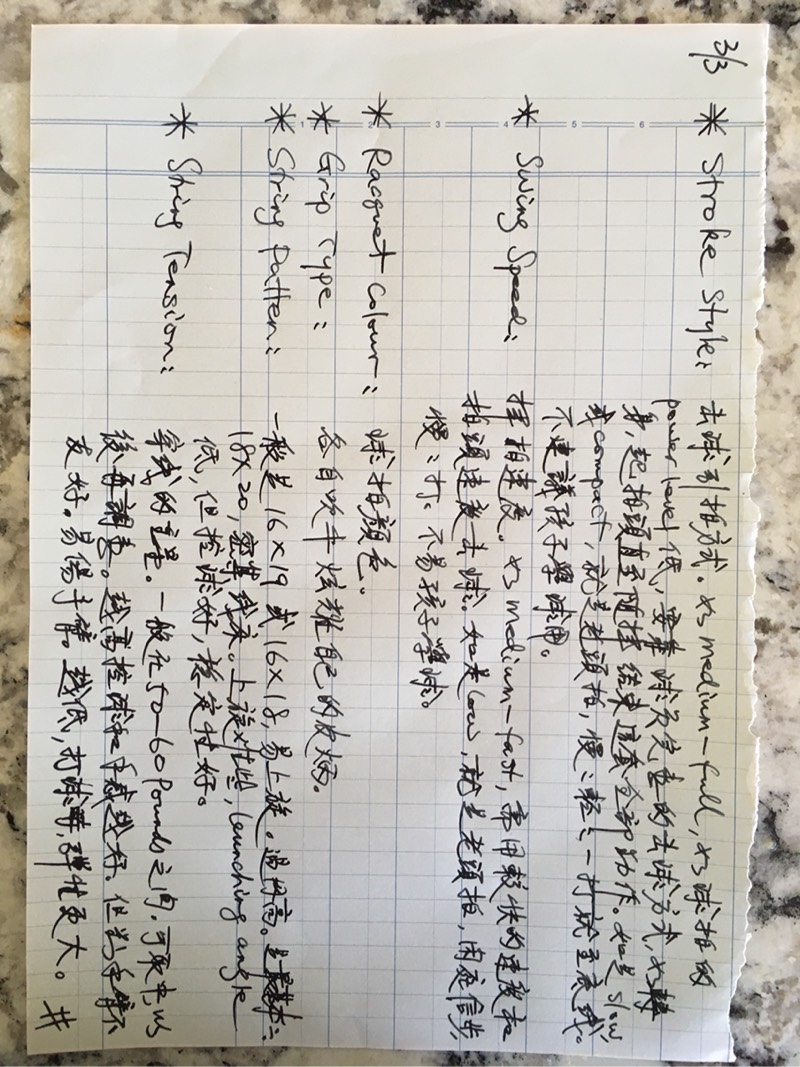 3/3
* Stroke Style: 击球引拍方式。如 medium-full, 如球拍的
power level 低, 要靠球员完整的击球方式, 如轉
身, 起拍頭直至随揮结束這套全部动作。如是 slow
或 compact, 就是老頭拍, 慢慢轻轻一打就至底线。
不建議孩子學球用。
* Swing Speed: 挥拍速度。如 medium-fast, 需用較快的速度和
拍頭速度击球。如是 low, 就是老頭拍, 闲庭信步
慢慢打。不易孩子學球。
* Racquet Colour: 球拍颜色。
* Grip Type: 各自吹牛炫耀自己的皮柄。
* String Pattern: 一般是 16×19 或 16×18, 易上旋。過网高。
18×20, 密集线床。上旋对些, launching angle
低, 但控球好, 稳定性好。
* String Tension: 穿线的重量。一般在 50-60 Pounds 之间, 可取中,
後再調整。越高控球和手感越好。但对手臂不
友好。易傷手臂。越低, 打球, 弹性更大。 #